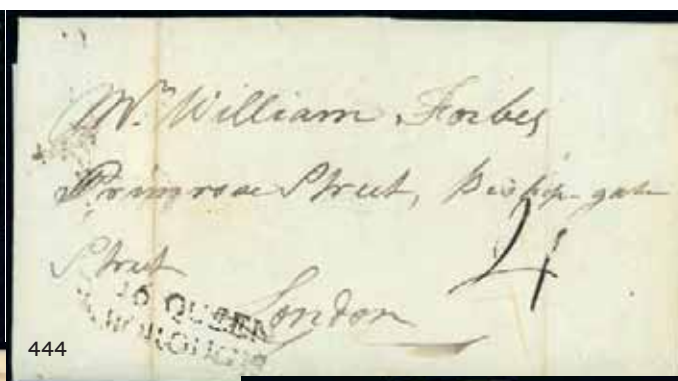 Mr. William Forbes
Primrose Street, Bishopgate
Street
London
4
QUEEN
BOROUGH
444